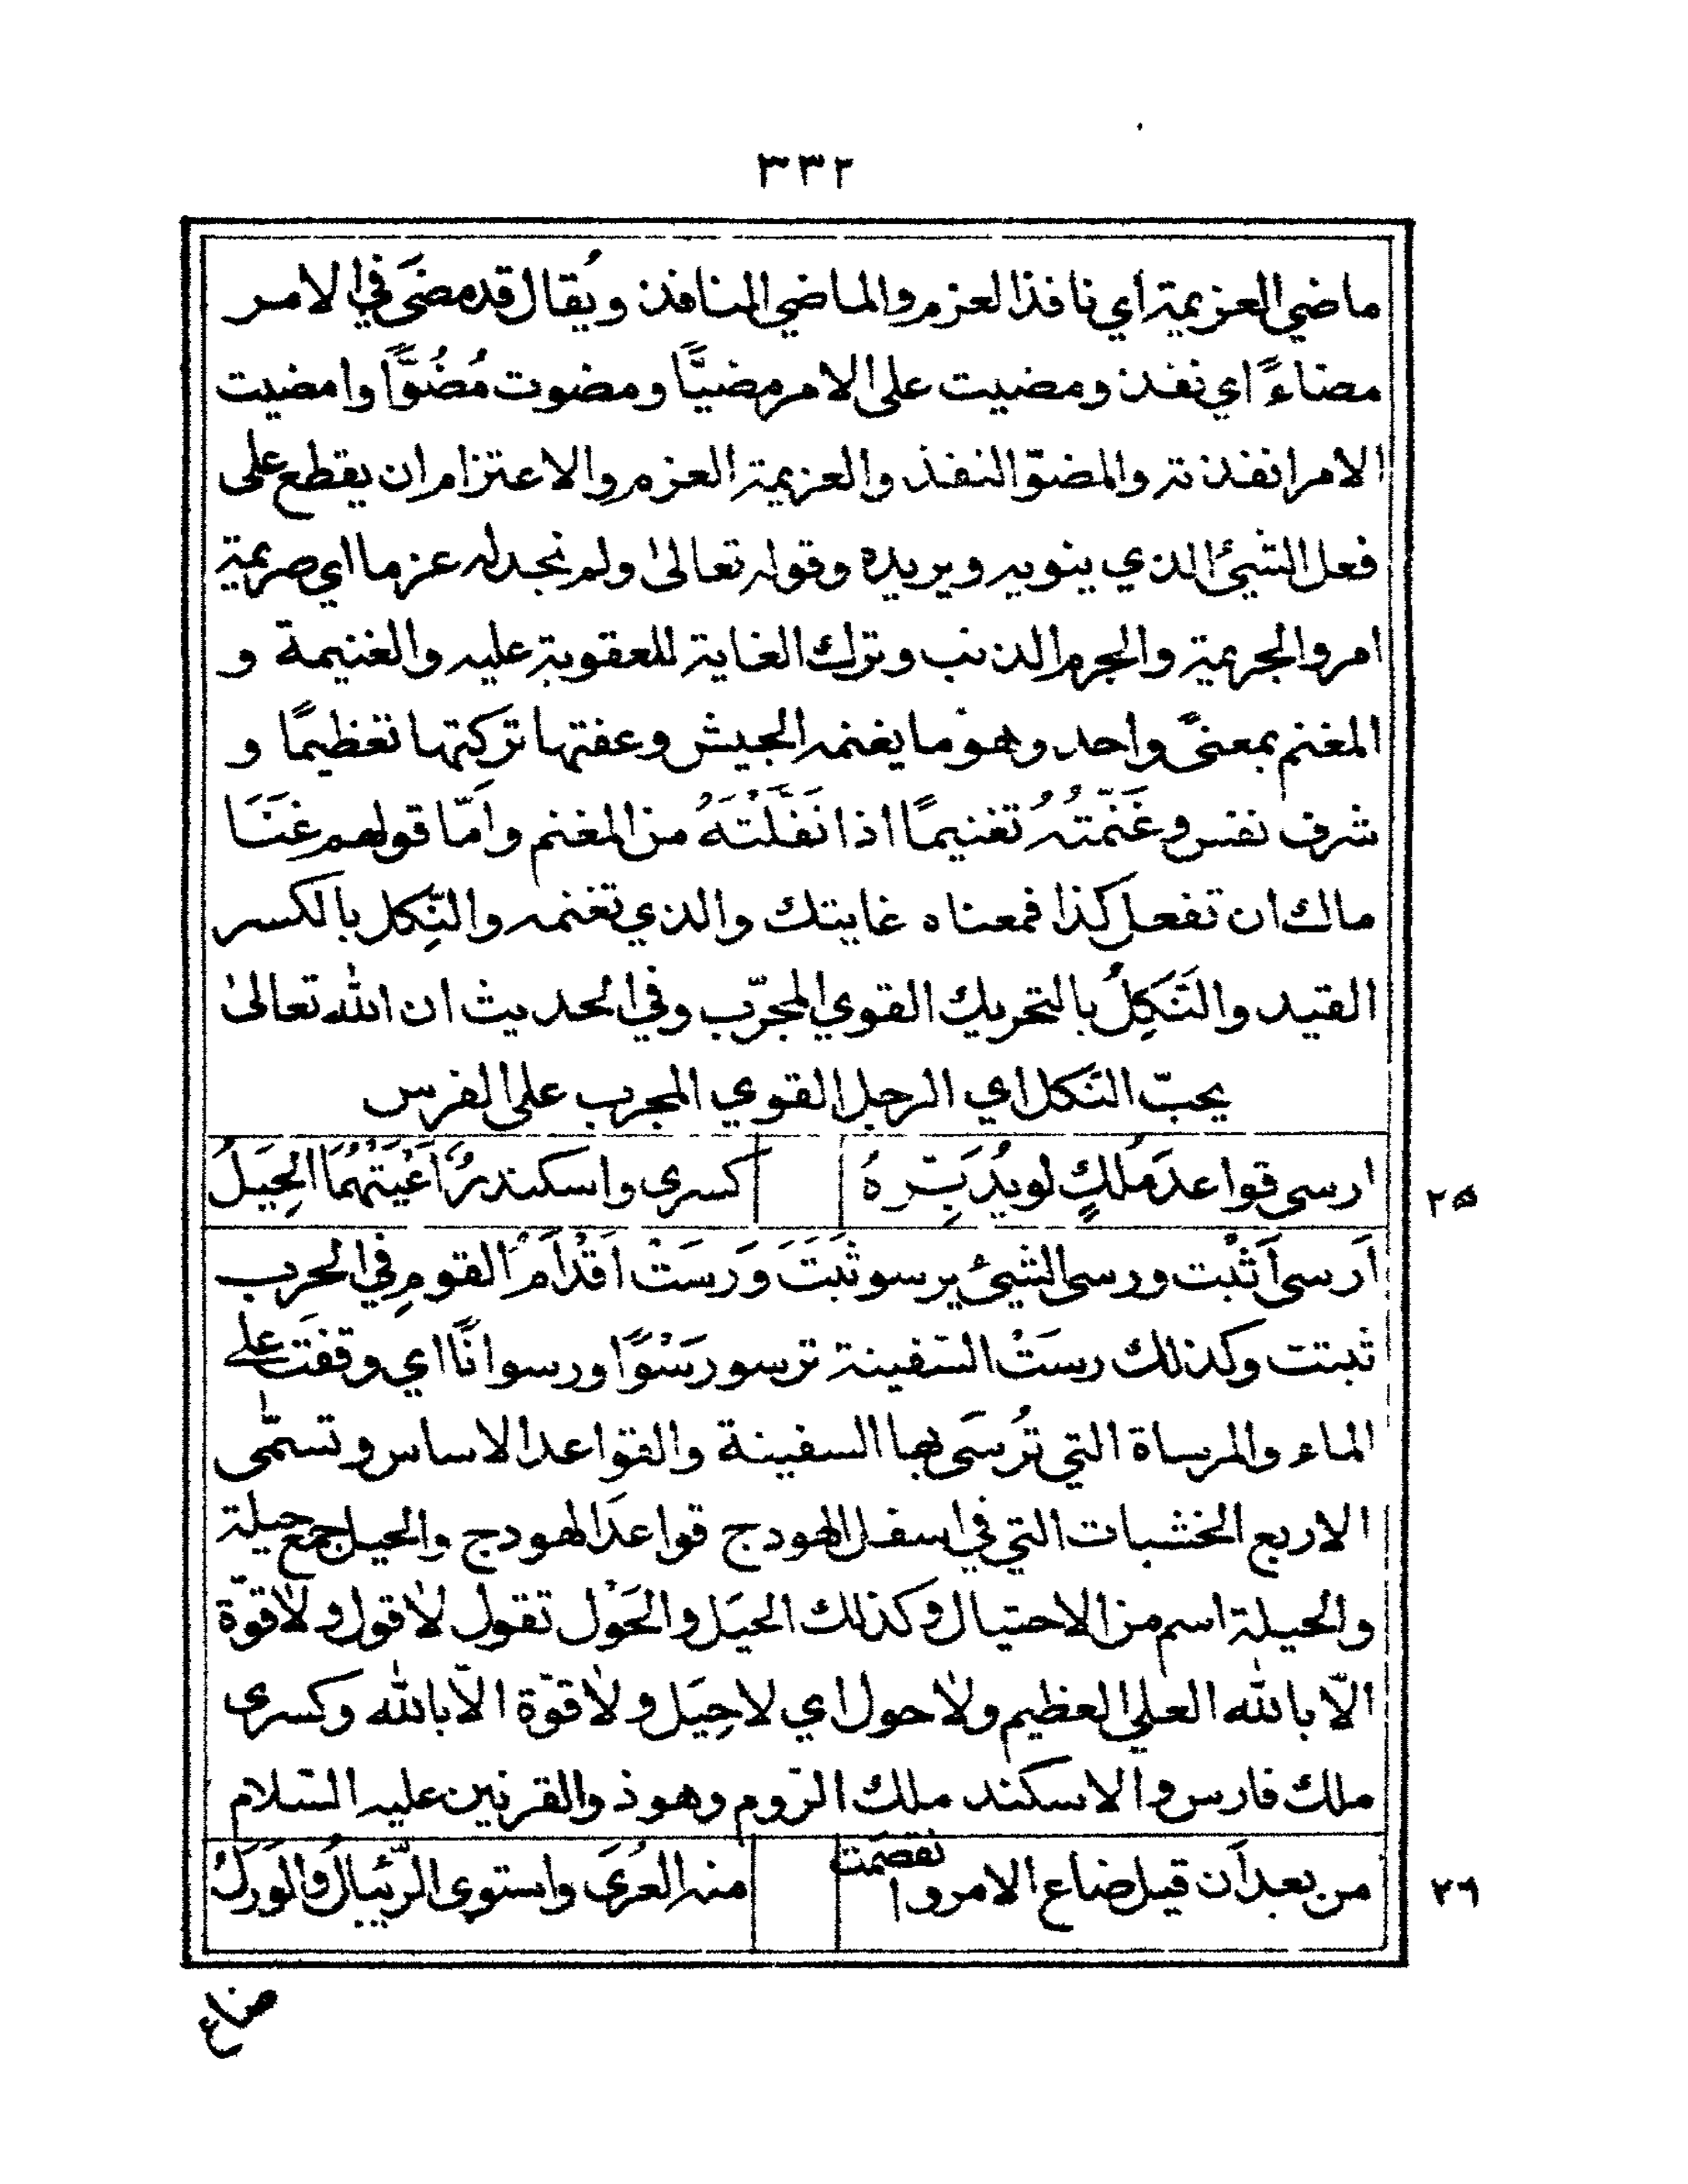 ٣٣٢
ماضي العزيمة اي نافذ العزم والماضي النافذ ويُقال قد مضَى في الامر
مضاءً اي نفذ ومضيت على الامر مضيًّا ومضوت مُضُوًّا وامضيت
الامر انفذته والمضوّ النفذ والعزيمة العزم والاعتزام ان يقطع على
فعل الشيئ الذي ينويه ويريده وقوله تعالىٰ ولم نجد له عزما اي صريمة
امر والجريمة والجرم الذنب وترك الغاية للعقوبة عليه والغنيمة و
المغنم بمعنىً واحد وهو ما يغنمه الجيش وعفتها تركتها تعظيمًا و
شرف نفس وغَنّمتُهُ تغنيمًا اذا نَفَّلْتَهُ من المغنم وامّا قولهم غَنَا
مالك ان تفعل كذا فمعناه غايتك والذي تغنمه والنِّكل بالكسر
القيد والنَّكِلُ بالتحريك القوي المجرّب وفي الحديث ان الله تعالىٰ
يحبّ النّكل اي الرجل القوي المجرب على الفرس
ارسى قواعد مُلكٍ لو يُدَبِّرهُ كسرى واسكندرٌ اَعْيَتْهُمَا الحِيَلُ
٢٥
اَرسى اَثْبت ورسى الشيئ يرسو ثَبَتَ وَرسَتْ اَقْدَامُ القومِ في الحرب
ثبتت وكذلك رسَتْ السّفينة ترسو رَسْوًا ورسوانًا اي وقفَت على
الماء والمرساة التي تُرسَى بها السفينة والقواعد الاساس وتسمّى
الاربع الخشبات التي في اسفل الهودج قواعدَ الهودج والحيل جمع حيلة
والحيلة اسم من الاحتيال وكذلك الحيَل والحَوْل تقول لا قول ولا قوّة
الّا بالله العلي العظيم ولا حول اي لا حِيَل ولا قوّة الّا بالله وكسرى
ملك فارس والاسكند ملك الرّوم وهو ذو القرنين عليه السّلام
من بعد اَن قيل ضاع الامر وانفصمت منه العُرىَ واستوى الرّئبالُ والوَرَلُ
٢٦
ضاع